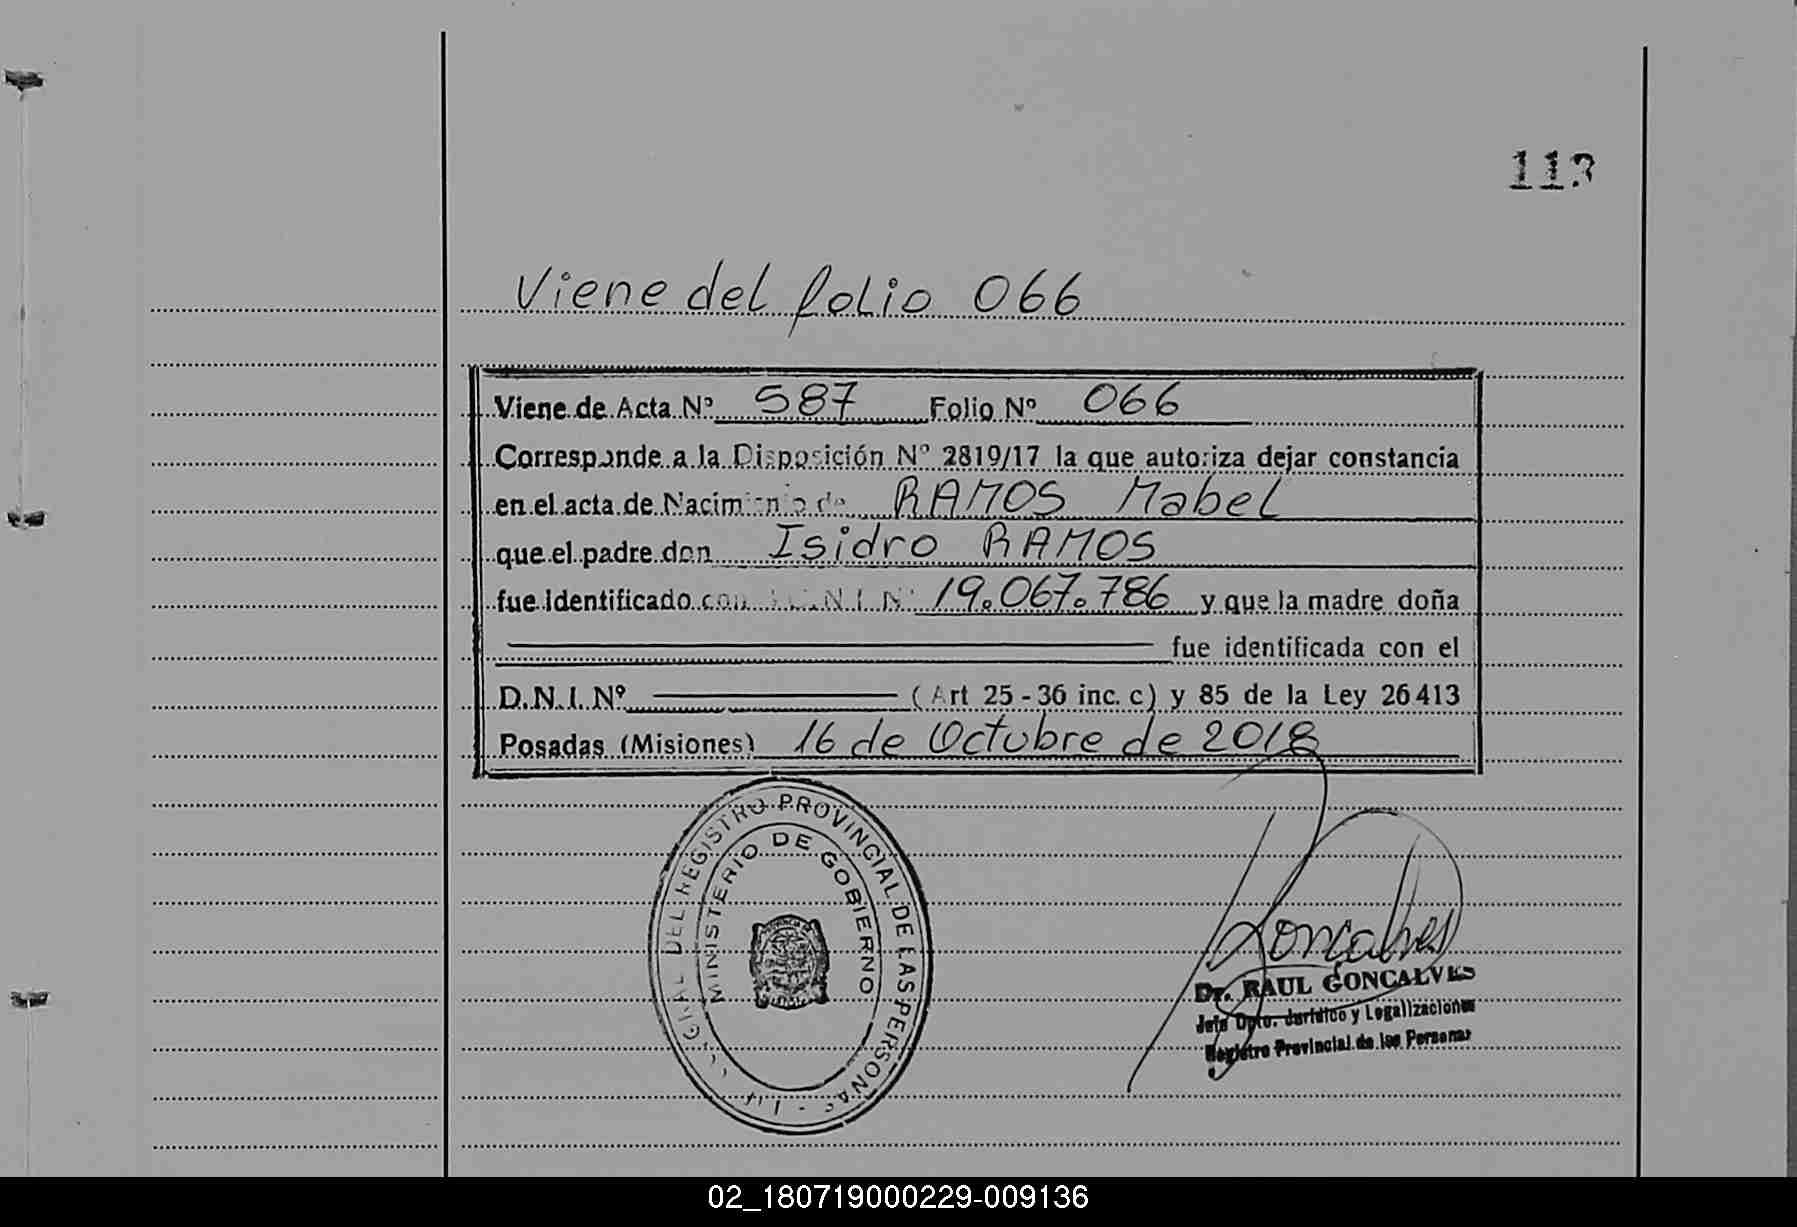 113
Viene del folio 066
Viene de Acta Nº 587 Folio Nº 066
Corresponde a la Disposición Nº 2819/17 la que autoriza dejar constancia
en el acta de Nacimiento de RAMOS Mabel
que el padre don Isidro RAMOS
fue identificado con D.N.I. Nº 19.067.786 y que la madre doña
fue identificada con el
D.N.I. Nº (Art 25-36 inc. c) y 85 de la Ley 26413
Posadas (Misiones) 16 de Octubre de 2018
DEL REGISTRO PROVINCIAL DE LAS PERSONAS
MINISTERIO DE GOBIERNO
Goncalves
Dr. RAUL GONCALVES
Jefe Dpto. Jurídico y Legalizaciones
Registro Provincial de las Personas
02_180719000229-009136